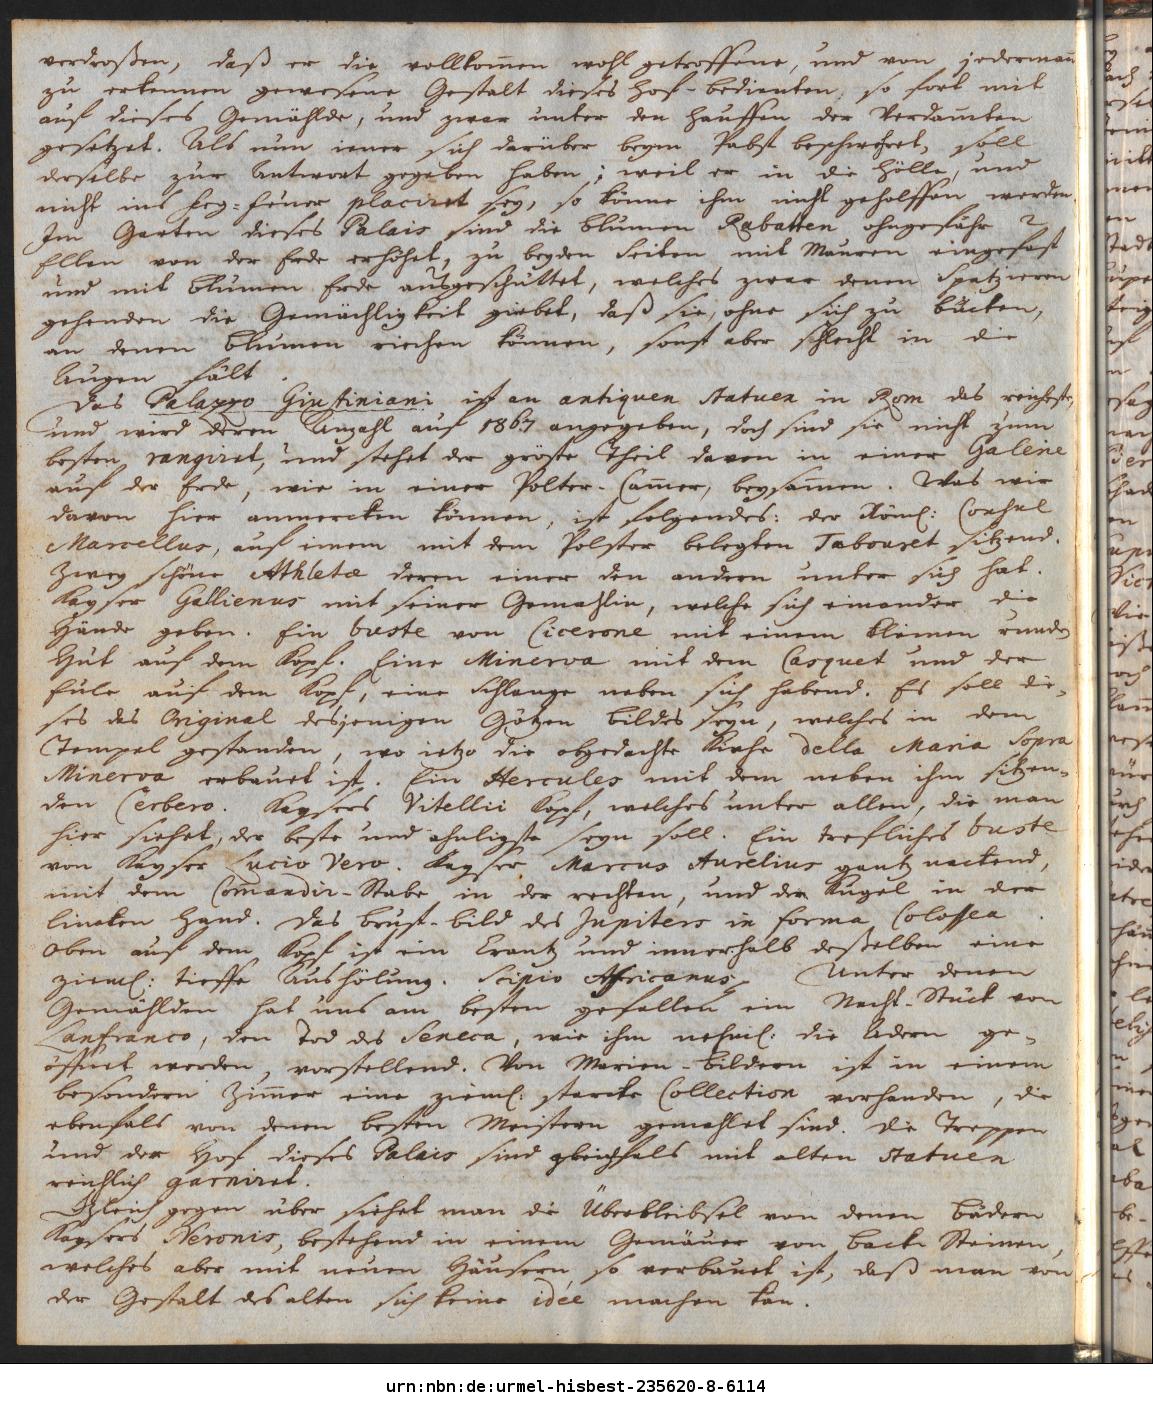 verdroßen, daß er die vollkom̄en wohl getroffene, und von jederman̄
zu erkennen gewesene Gestalt dieses Hof-bedienten, so fort mit
auf dieses Gemählde, und zwar unter den Hauffen der Verdam̄ten
gesetzet. Als nun jener sich darüber beym Pabst beschwehret, soll
derselbe zur Antwort gegeben haben; weil er in die Hölle, und
nicht ins Feg=feuer placiret sey, so könne ihm nicht geholffen werden.
Im Garten dieses Palais sind die blumen Rabatten ohngefähr 2
Ellen von der Erde erhöhet, zu beyden Seiten mit Mauren eingefast
und mit Blumen Erde ausgeschüttet, welches zwar denen Spatzieren
gehenden die Gemächligkeit giebet, daß sie, ohne sich zu bücken,
an denen blumen riechen können, sonst aber schlecht in die
Augen fält.
Das Palazzo Giustiniani ist an antiquen Statuen in Rom das reichste,
und wird deren Anzahl auf 1867 angegeben, doch sind sie nicht zum
besten rangiret, und stehet der gröste Theil davon in einer Galerie
auf der Erde, wie in einer Polter-Cam̄er, beysam̄en. Was wir
davon hier anmercken können, ist folgendes: der Röml: Consul
Marcellus, auf einem mit dem Polster belegten Tabouret sitzend.
Zwey schöne Athletæ deren einer den andern unter sich hat.
Kayser Gallienus mit seiner Gemahlin, welche sich einander die
Hände geben. Ein buste von Cicerone mit einem kleinen runden
Hut auf dem Kopf. Eine Minerva mit dem Casquet und der
Eule auf dem Kopf, eine Schlange neben sich habend. Es soll die-
ses das Original desjenigen Götzen bildes seyn, welches in dem
Tempel gestanden, wo ietzo die obgedachte Kirche della Maria Sopra
Minerva erbauet ist. Ein Hercules mit dem neben ihm sitzen-
den Cerbero. Kaysers Vitellii Kopf, welches unter allen, die man
hier siehet, der beste und ähnligste seyn soll. Ein trefliches buste
von Kayser Lucio Vero. Kayser Marcus Aurelius gantz nackend,
mit dem Com̄andir-Stabe in der rechten, und der Kugel in der
lincken Hand. Das brust-bild des Jupiters in forma Colossea.
Oben auf dem Kopf ist ein Crantz und innerhalb deßelben eine
zieml: tieffe Aushölung. Scipio Africanus. Unter denen
Gemählden hat uns am besten gefallen ein Nacht-Stück von
Lanfranco, den Tod des Seneca, wie ihm nehml: die Adern ge-
öffnet werden, vorstellend. Von Marien-bildern ist in einem
besondern Zim̄er eine zieml: starcke Collection vorhanden, die
ebenfals von denen besten Meistern gemahlet sind. Die Treppen
und der Hof dieses Palais sind gleichfals mit alten Statuen
reichlich garniret.
Gleich gegen über siehet man die Überbleibsel von denen bädern
Kaysers Neronis, bestehend in einem Gemäuer von back Steinen,
welches aber mit neuen Häusern so verbauet ist, daß man von
der Gestalt des alten sich keine idée machen kan.
urn:nbn:de:urmel-hisbest-235620-8-6114